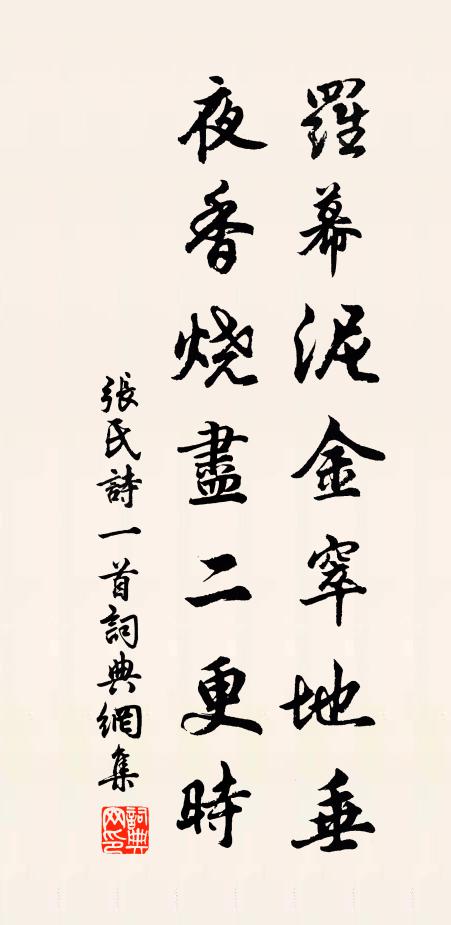 羅幕泥金窣地垂
夜香烧盡二更時
張氏詩一首詞典網集
詞典网印